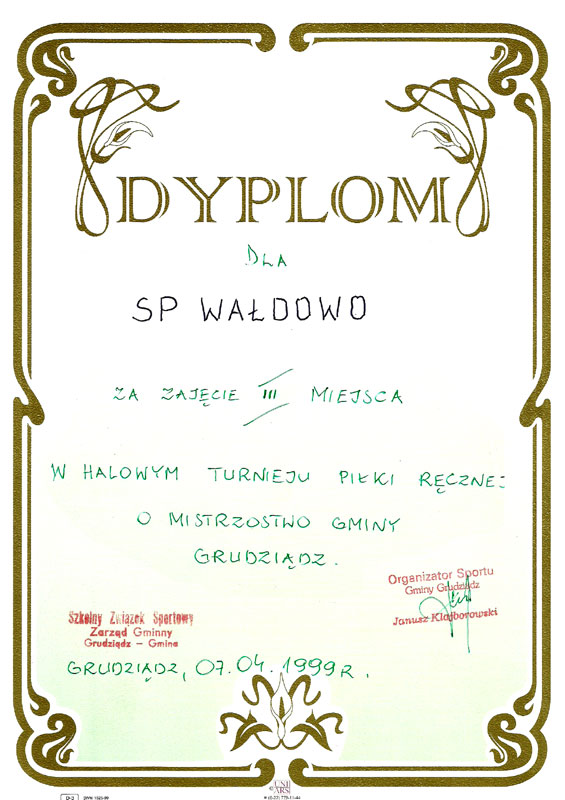 DYPLOM
DLA
SP WAŁDOWO
ZA ZAJĘCIE III MIEJSCA
W HALOWYM TURNIEJU PIŁKI RĘCZNEJ
O MISTRZOSTWO GMINY
GRUDZIĄDZ.
Organizator Sportu
Gminy Grudziądz
Janusz Klajborowski
Szkolny Związek Sportowy
Zarząd Gminny
Grudziądz - Gmina
GRUDZIĄDZ, 07.04.1999 R.
UNI
ARS